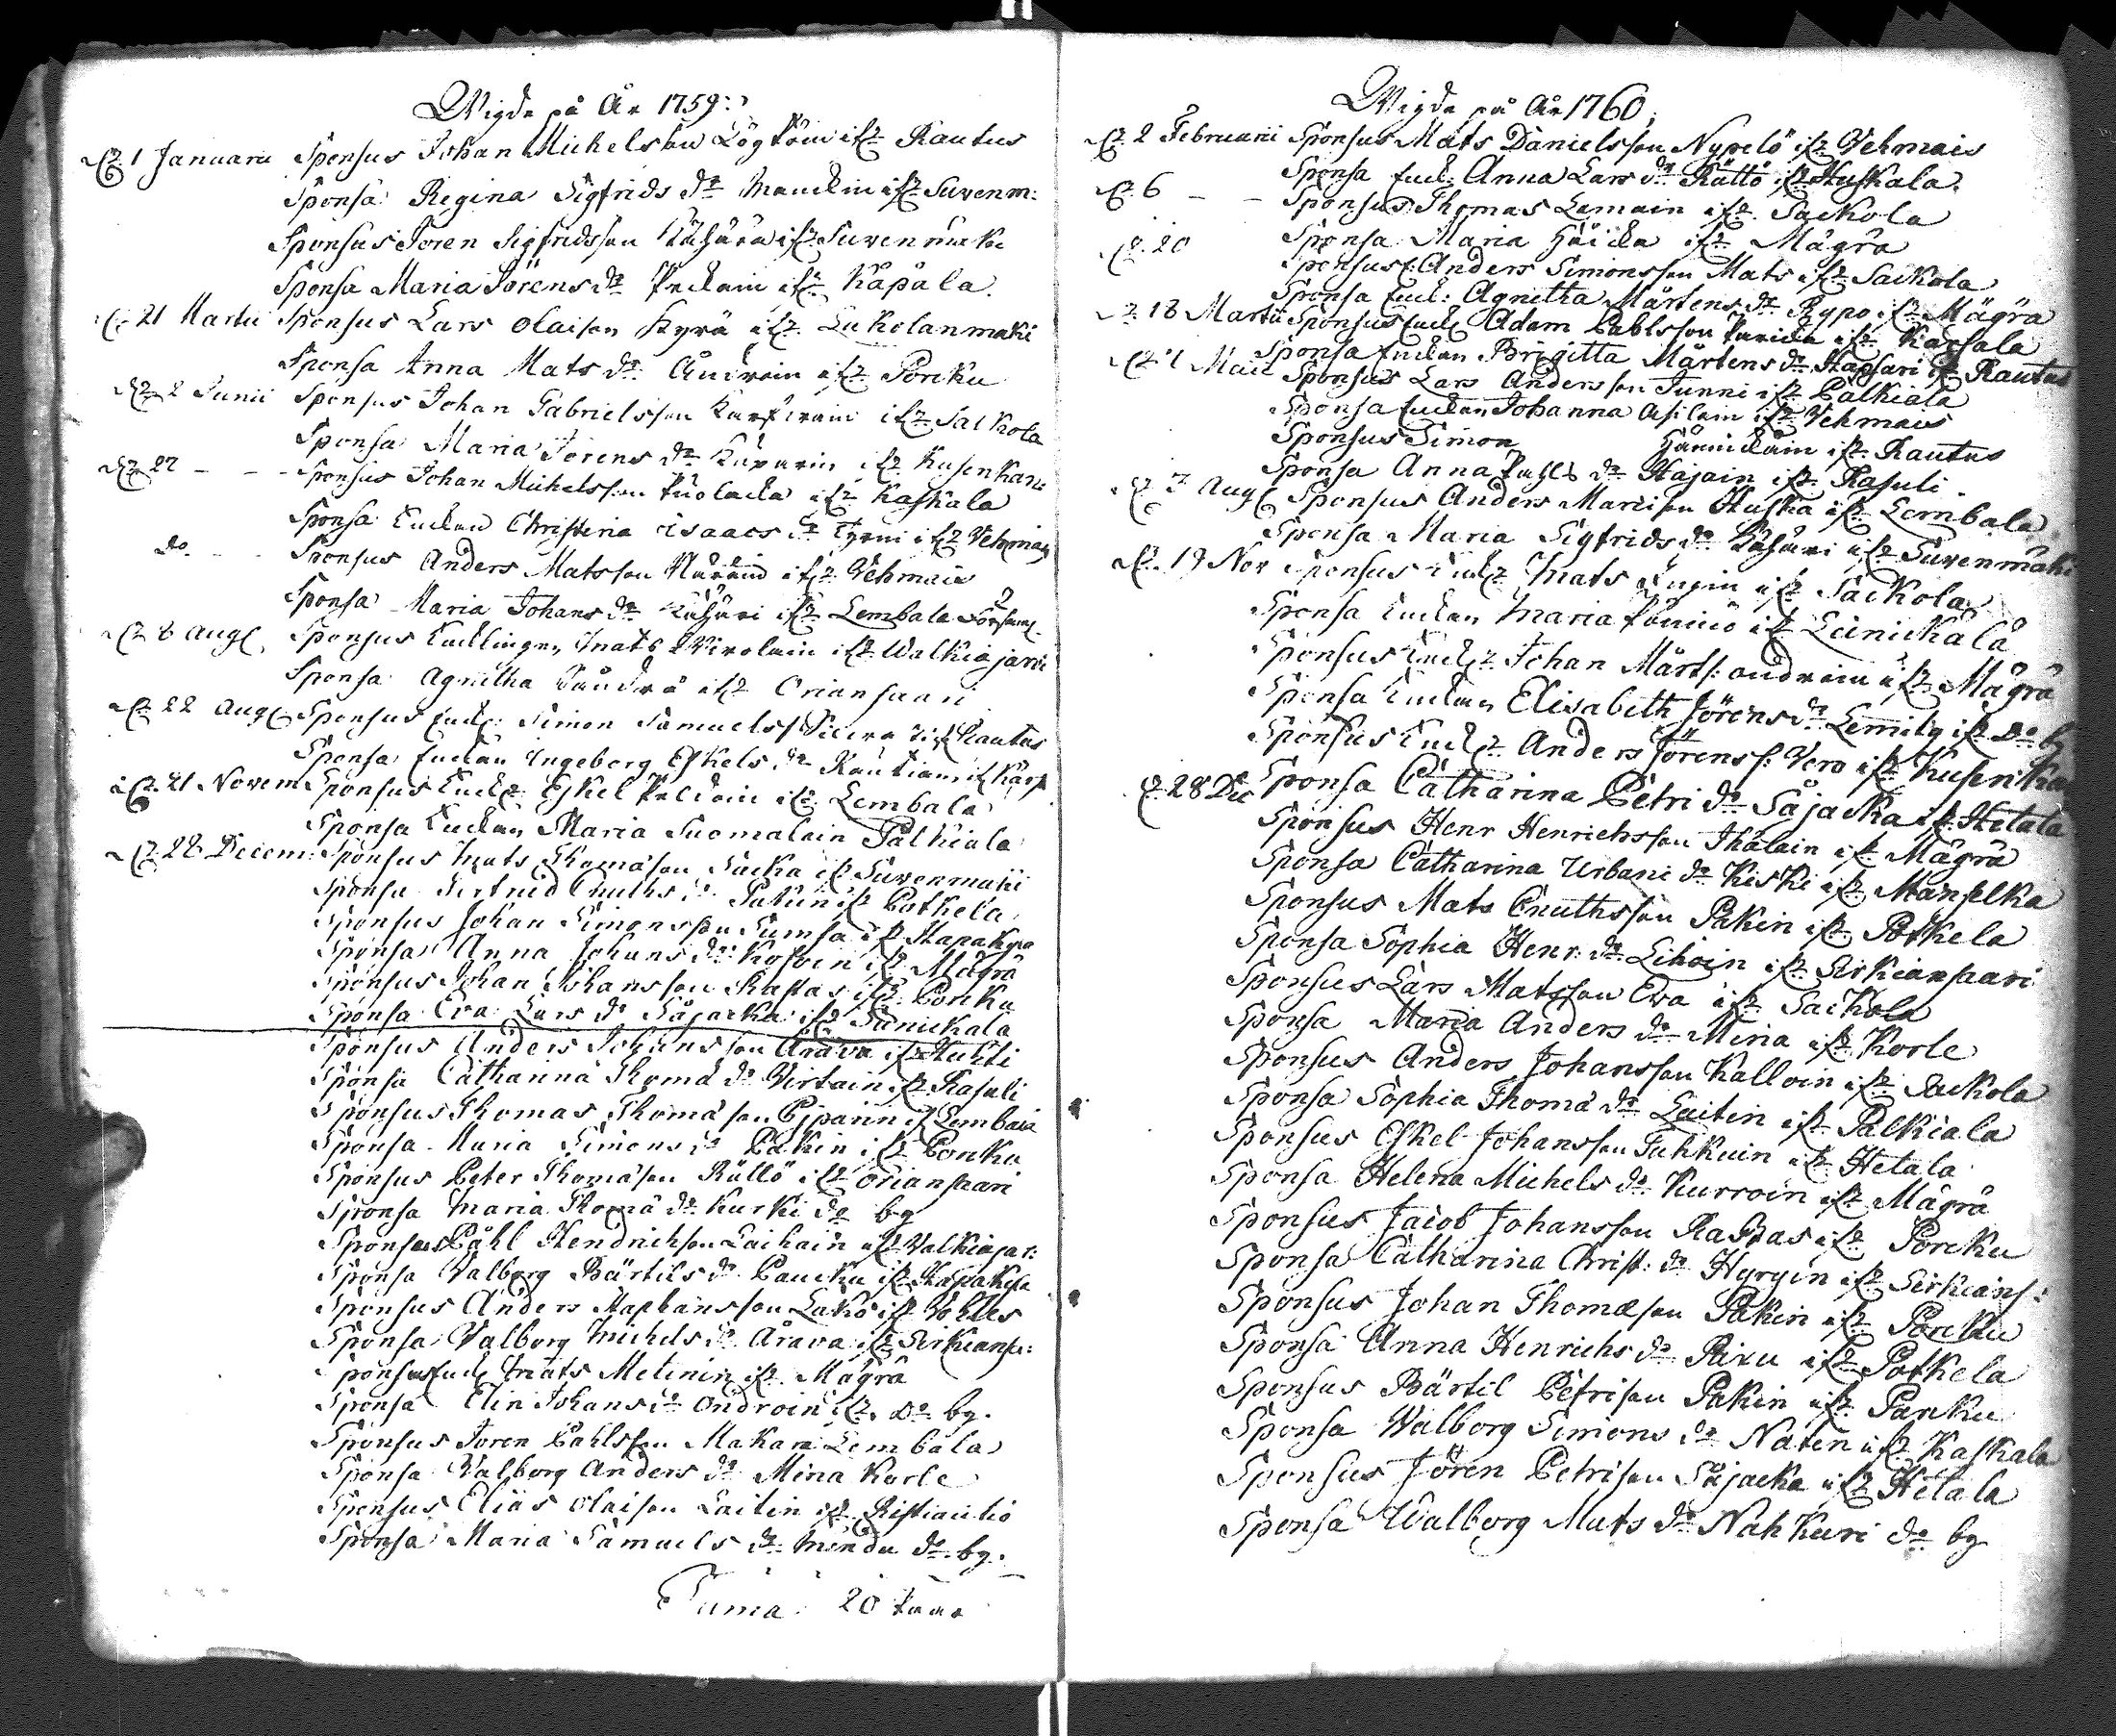 Wigde på År 1759:
1 Januarii Sponsus Johan Michelsson Kögköin ifr. Rautus
Sponsa Regina Sigfrids dr. Manckin ifr. Suvenm:
Sponsus Jören Sigfridsson Kähärä ifr. Suvenmäki
Sponsa Maria Jörens dr. ifr. Käpälä
21 Martii Sponsus Lars Olaison Hyvä ifr. Lukolanmäki
Sponsa Anna Mats dr. Äudroin ifr. Porcku
2 Junii Sponsus Johan Gabrielsson ifr. Sackola
Sponsa Maria Jörens dr. ifr. Kusenkan:
27 - - Sponsus Johan Michelsson ifr. Kaskala
Sponsa Enckan Christina Isaacs dr. Tyrni ifr. Vehmais
do. - - Sponsus Anders Matsson ifr. Vehmais
Sponsa Maria Johans dr. Kähäri ifr. Lembala
8 Aug. Sponsus Enklingen Mats Wirolain ifr. Walkiajärvi
Sponsa Agnetha ifr. Oriansaari
22 Aug. Sponsus Enkl: Simon Samuelss. ifr. Rautus
Sponsa Enckan Ingeborg Eskels dr. Rautiain ifr. Kars
21 Novem Sponsus Enckl. Eskel ifr. Lembala
Sponsa Enckan Maria Suomalain Palkiala
28 Decem: Sponsus Mats Thomason Säcka ifr. Suvenmäki
Sponsa Gertrud Cnuths dr. Pakin ifr. Potkela
Sponsus Johan Simonsson Sumsa ifr. Haapakyla
Sponsa Anna Johans dr. Kosoin ifr. Mägrä
Sponsus Johan Johansson Rastas ifr. Porcku
Sponsa Eva Lars dr. Säjacka ifr. Leinickälä
Sponsus Anders Johansson Arava ifr. Huhti
Sponsa Catharina Thoma dr. Virtain ifr. Rasuli
Sponsus Thomas Thomason Pipparin ifr. Lembala
Sponsa Maria Simons dr. Pakin ifr. Poncku
Sponsus Peter Thomason Rättö ifr. Orianpaari
Sponsa Maria Thoma dr. Kurki do by
Sponsus Påhl Hendrichson Laihain ifr. Valkiajar:
Sponsa Valborg Bärtils dr. Paucku ifr. Hapakyla
Sponsus Anders Staphansson Lakö ifr. Vehles
Sponsa Valborg Michels dr. Arava ifr. Sirkiansa:
Sponsus Enckl. Mats Metinin ifr. Mägrä
Sponsa Elin Johans dr. Ondroin ifr. do by.
Sponsus Jören Påhlsson Makara Lembala
Sponsa Valborg Anders dr. Mina Korle
Sponsus Elias Olaison Laitin ifr. Ristiautio
Sponsa Maria Samuels dr. Mändu do by.
Suma 20 paar
Wigde på År 1760,
2 Februarii Sponsus Mats Danielsson Nypelö ifr. Vehmais
Sponsa Enck: Anna Lars dr. Rättö ifr. Huskala
6 - - Sponsus Thomas Lemain ifr. Sackola
Sponsa Maria Häicka ifr. Mägrä
20 Sponsus Anders Simonsson Mats ifr. Sackola
Sponsa Enck: Agnetha Mårtens dr. Rypo ifr. Mägrä
18 Martii Sponsus Enckl. Adam Påhlsson ifr. Kaasala
Sponsa Enckan Brigitta Mårtens dr. Hapsari ifr. Rautus
1 Maii Sponsus Lars Andersson Junni ifr. Palkiala
Sponsa Enckan Johanna Asilain ifr. Vehmais
Sponsus Simon Hännickäin ifr. Rautus
Sponsa Anna Påhls dr. Hajain ifr. Rasuli
7 Aug. Sponsus Anders Marcison Huska ifr. Lembala
Sponsa Maria Sigfrids dr. Kähäri ifr. Suvenmäki
19 Nov Sponsus Enckl. Mats ifr. Sackola
Sponsa Enckan Maria ifr. Leinickälä
Sponsus Enckl. Johan Mårts: Ondroin ifr. Mägrä
Sponsa Enckan Elisabeth Jörens dr. Lemity ifr. do by
Sponsus Enckl. Anders Jörenss: Vero ifr. Kusenka
28 Dec Sponsa Catharina Petri dr. Säjacka ifr. Hetala
Sponsus Henr Henrichsson Ihalain ifr. Mägrä
Sponsa Catharina Urbani dr. Kiski ifr. Manselka
Sponsus Mats Cnuthsson Pakin ifr. Potkela
Sponsa Sophia Henr: dr. Lihoin ifr. Sirkianpaari
Sponsus Lars Matsson Eva ifr. Sackola
Sponsa Maria Anders dr. Mina ifr. Korle
Sponsus Anders Johansson Kalloin ifr. Sackola
Sponsa Sophia Thoma dr. Laitin ifr. Palkiala
Sponsus Eskel Johansson Tuhkuin ifr. Hetala
Sponsa Helena Michels dr. Kurroin ifr. Mägrä
Sponsus Jacob Johansson Rastas ifr. Porcku
Sponsa Catharina Christ: dr. Hyryin ifr. Sirkians:
Sponsus Johan Thomæson Pakin ifr. Porcku
Sponsa Anna Henrichs dr. Raiku ifr. Potkela
Sponsus Bärtil Petrison Pakin ifr. Porcku
Sponsa Walborg Simons dr. Naten ifr. Kaskala
Sponsus Jören Petrison Säjacka ifr. Hetala
Sponsa Walborg Mats dr. Nahkuri do by